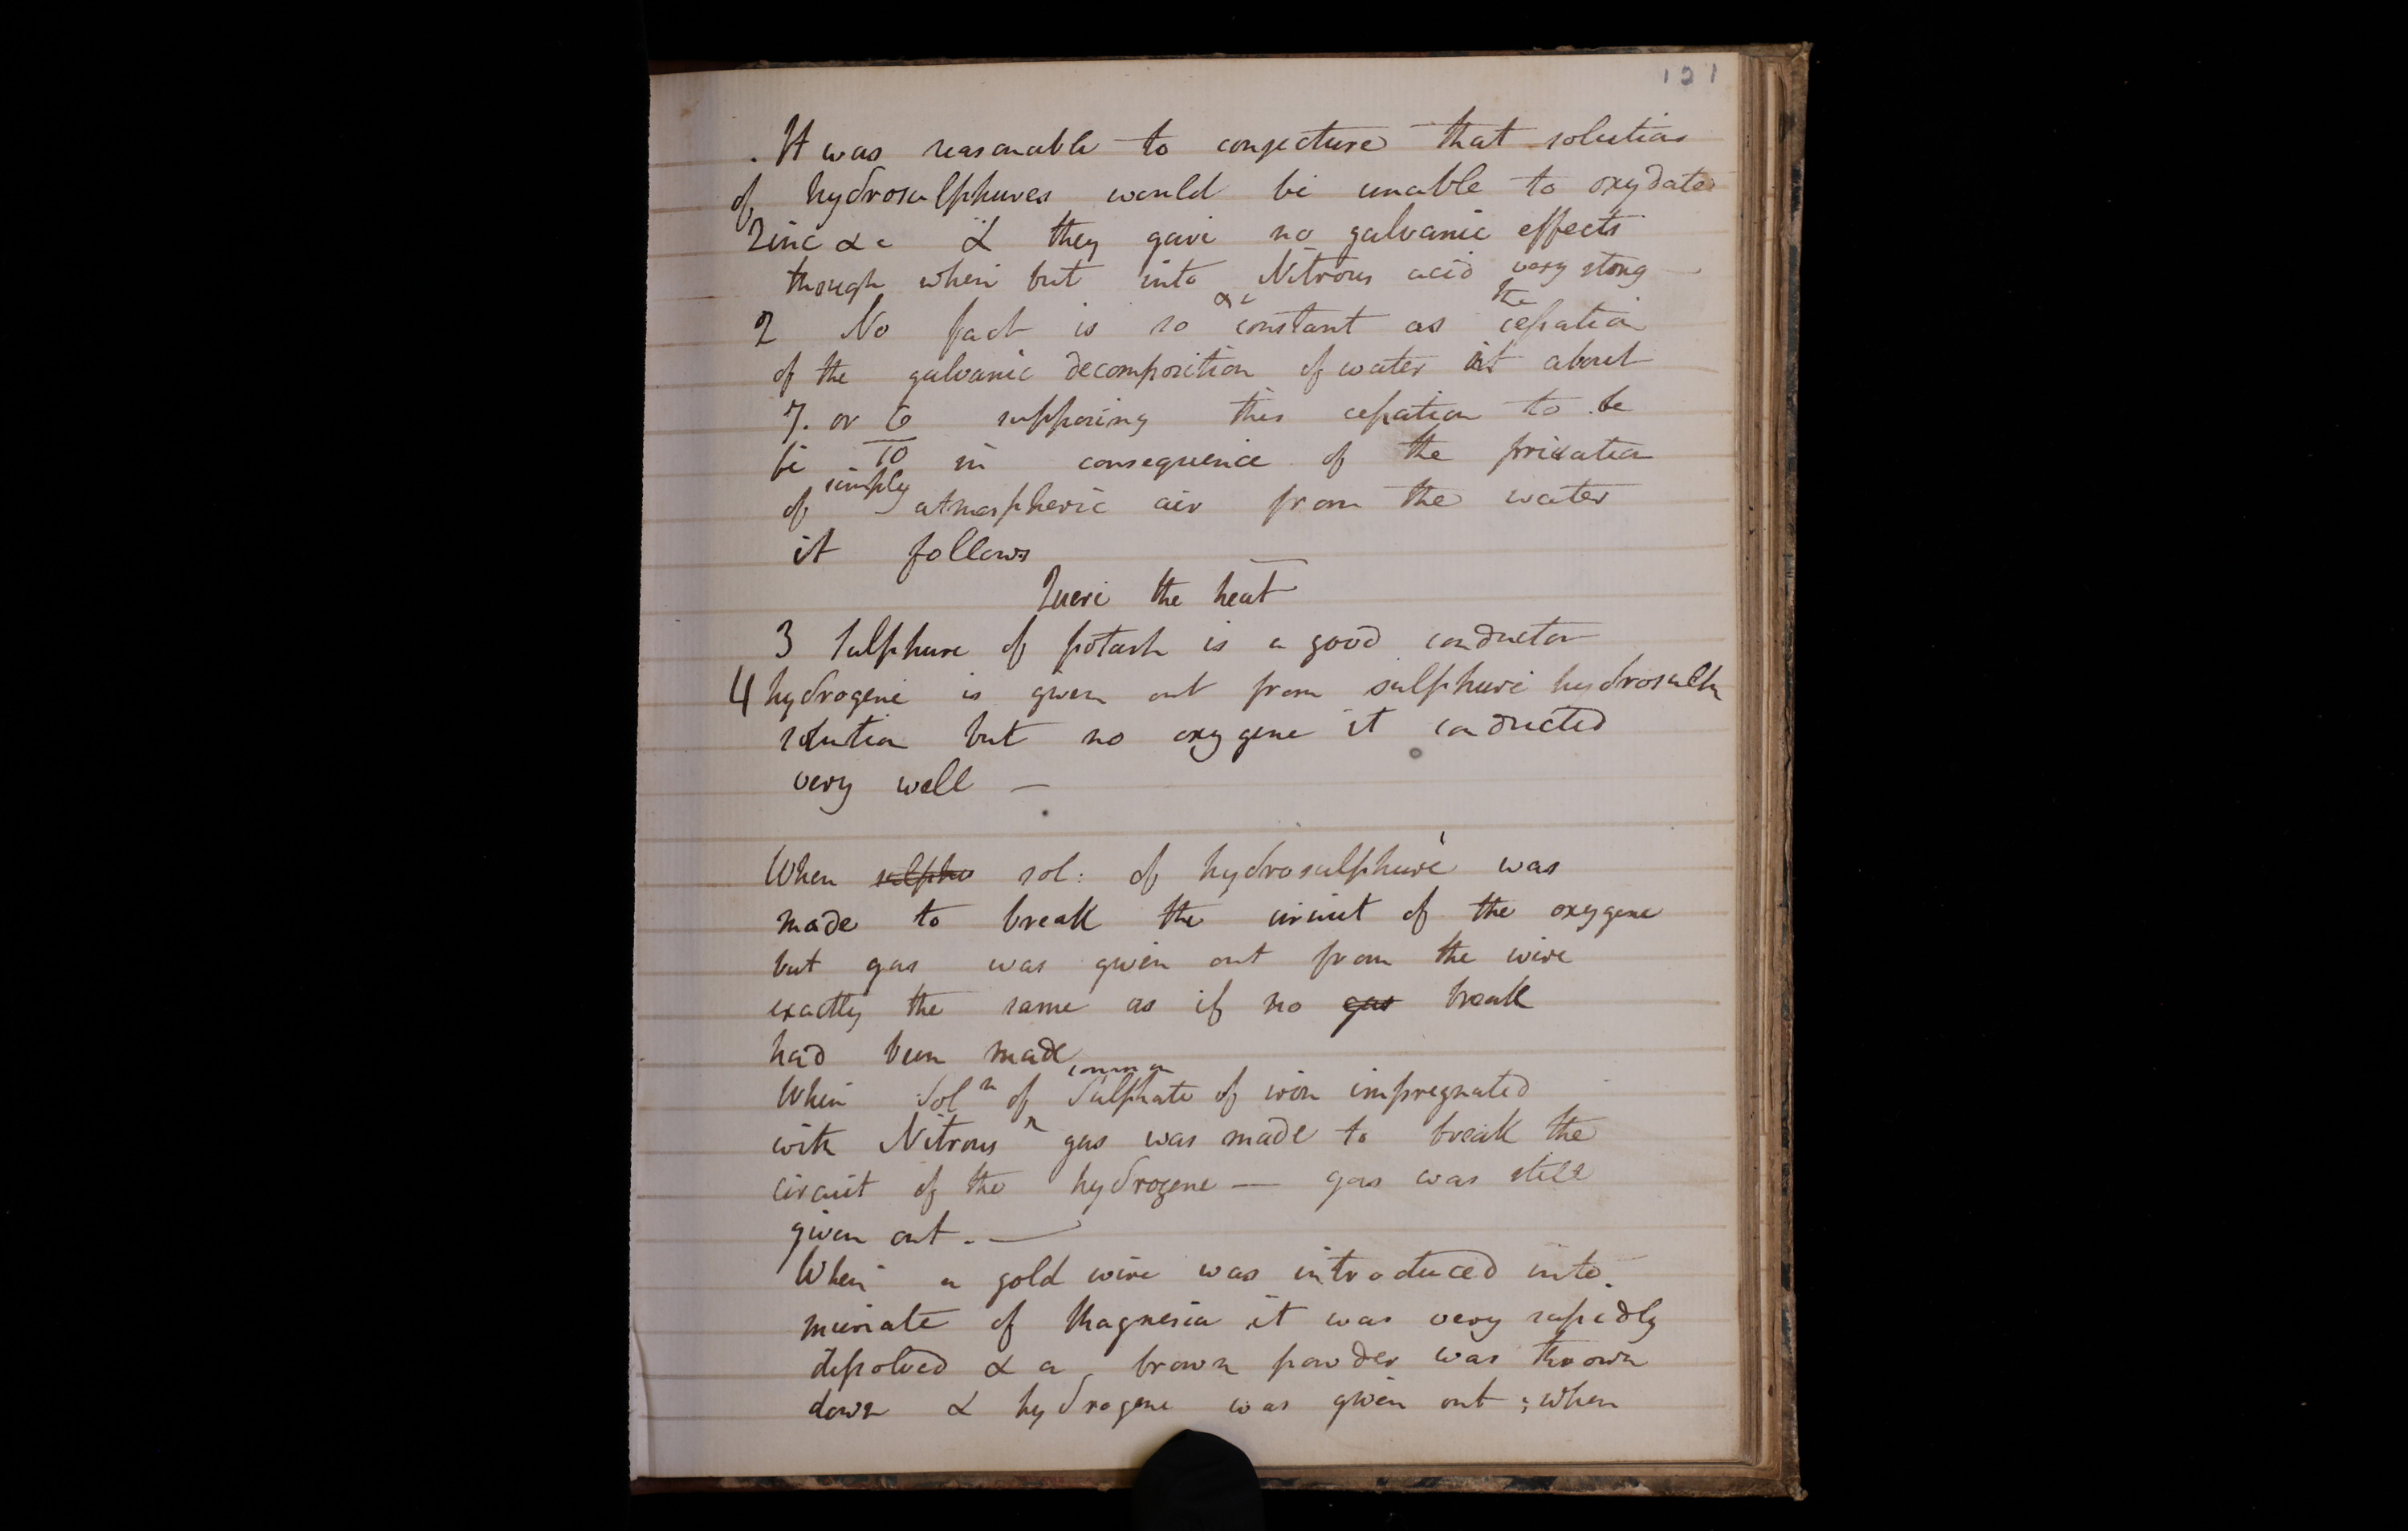 121
. It was reasonable to conjecture that solutions
of hydrosulphures would be unable to oxydate
Zinc &c & they gave no galvanic effects
though when but into Nitrous acid very stong —
&c the
2 No fact is so constant as cessation
of the galvanic decomposition of water at about
7. or 6 supposing this cessation to be
be 10 in consequence of the privation
simply
of atmospheric air from the water
it follows
Quere the heat
3 Sulphure of potash is a good conductor
4 hydrogene is given out from sulphure hydrosulph
solution but no oxygene it conducted
very well —
When sulpho sol: of hydrosulphure was
made to break the circuit of the oxygene
but gas was given out from the wire
exactly the same as if no gas break
had been made
common
When Soln of Sulphate of iron impregnated
with Nitrous gas was made to break the
circuit of the hydrogene — gas was still
given out. —
When a gold wire was introduced into
muriate of Magnesia it was very rapidly
dissolved & a brown powder was thrown
down & hydrogene was given out ; when